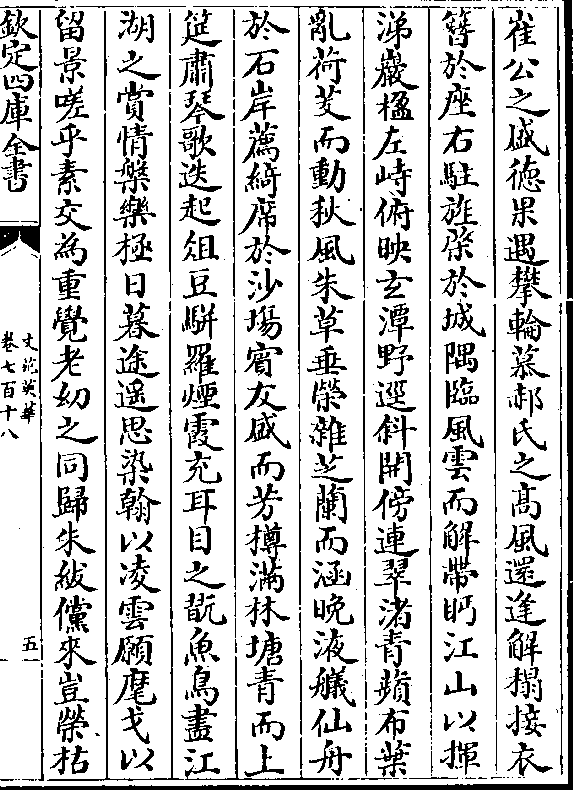 崔公之盛徳果遇攀輪慕郝氏之髙風還逢解榻接衣
簪於座右駐旌棨於城隅臨風雲而解帶眄江山以揮
涕巖楹左峙俯映玄潭野逕斜開傍連翠渚青蘋布葉
亂荷芰而動秋風朱草垂榮雜芝蘭而涵晚液艤仙舟
於石岸薦綺席於沙塲賓友盛而芳樽滿林塘青而上
筵肅琴歌迭起俎豆駢羅煙霞充耳目之翫魚鳥盡江
湖之賞情槃樂極日暮途遥思染翰以凌雲願麾戈以
留景嗟乎素交為重覺老幼之同歸朱紱儻來豈榮枯
欽定四庫全書
文苑英華
卷七百十八
五